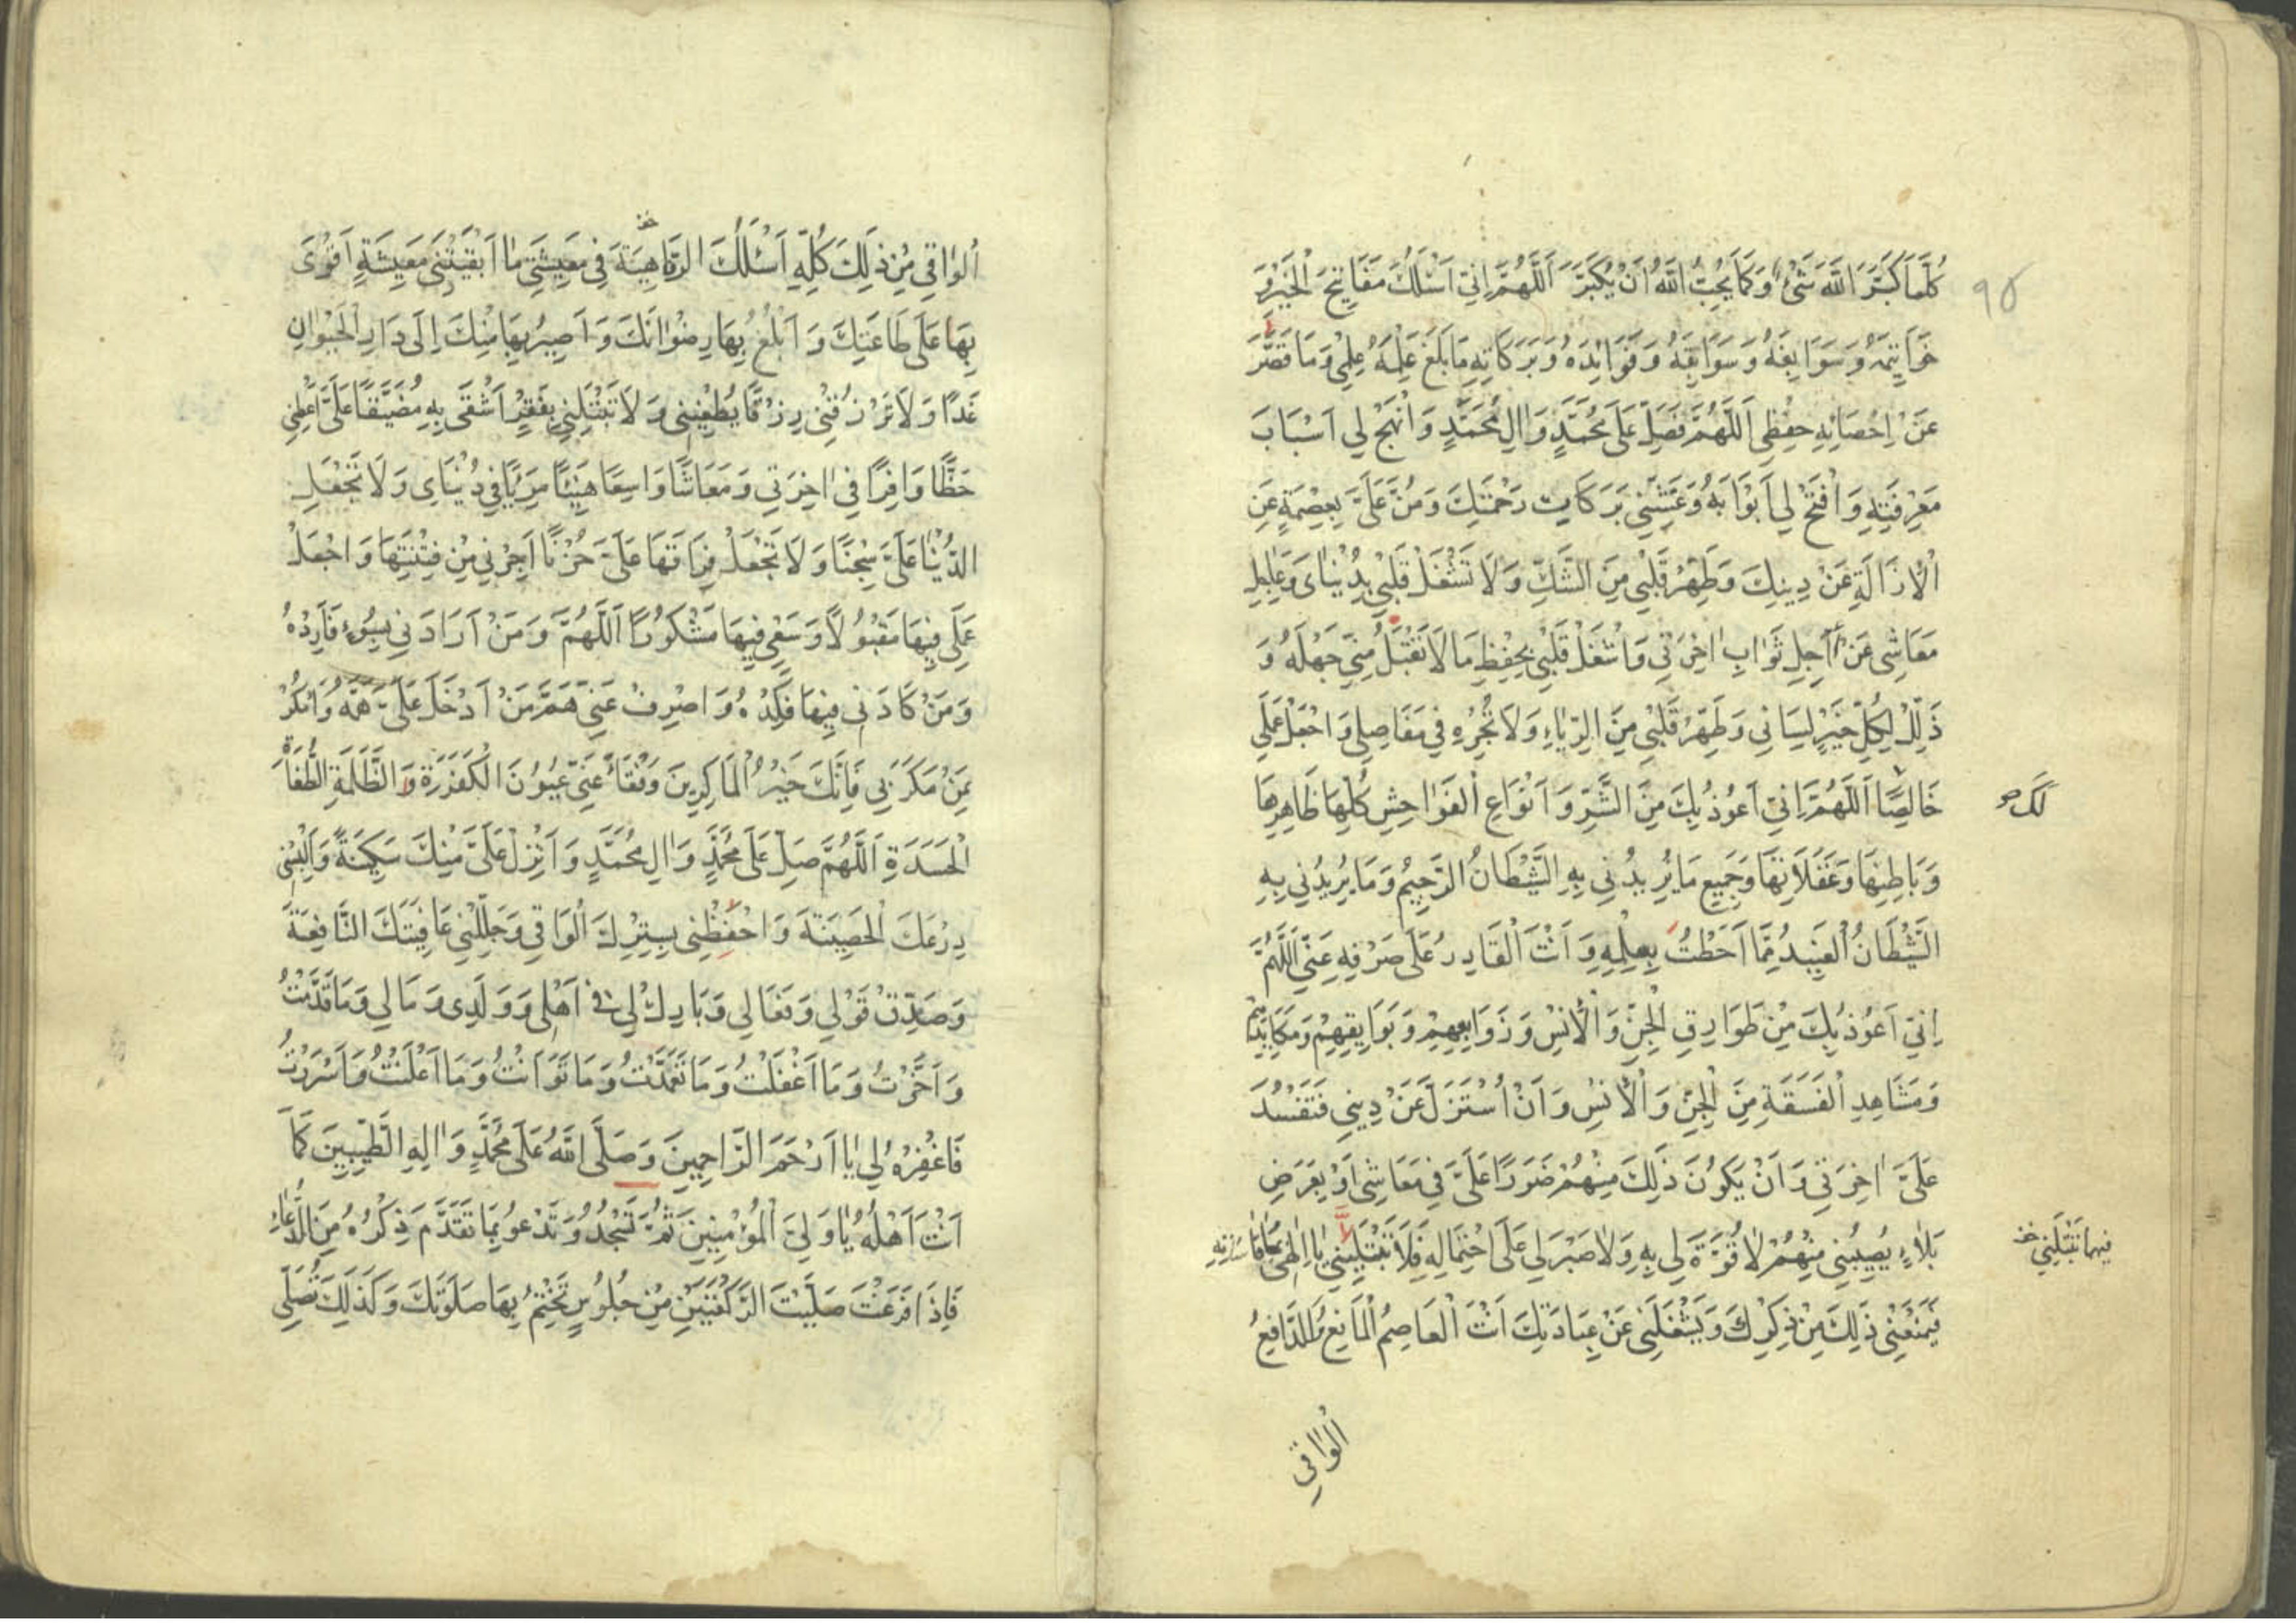 ٩٥
كُلَّمَا كَبَّرَ اللَّهَ شَيْءٌ وَكَمَا يُحِبُّ اللَّهُ أَنْ يُكَبَّرَ اَللَّهُمَّ اِنّي اَسْئَلُكَ مَفَاتِيحَ الْخَيْرِ وَ
خَوَاتِيمَهُ وَسَوَابِغَهُ وَسَوَابِقَهُ وَفَوَائِدَهُ وَبَرَكَاتِهِ مَا بَلَغَ عِلْمَهُ عِلْمِي وَمَا قَصَّرَ
عَنْ اِحْصَائِهِ حِفْظِي اَللَّهُمَّ فَصَلِّ عَلَى مُحَمَّدٍ وَاٰلِ مُحَمَّدٍ وَانْهَجْ لِي اَسْبَابَ
مَعْرِفَتِهِ وَافْتَحْ لِي اَبْوَابَهُ وَغَشِّنِي بَرَكَاتِ رَحْمَتِكَ وَمُنَّ عَلَيَّ بِعِصْمَةٍ عَنِ
الْاِزَالَةِ عَنْ دِينِكَ وَطَهِّرْ قَلْبِي مِنَ الشَّكِّ وَلَا تَشْغَلْ قَلْبِي بِدُنْيَايَ وَعَاجِلِ
مَعَاشِي عَنْ اٰجِلِ ثَوَابِ اٰخِرَتِي وَاشْغَلْ قَلْبِي بِحِفْظِ مَا لَا تَقْبَلُ مِنِّي جَهْلَهُ وَ
ذَلِّلْ لِكُلِّ خَيْرٍ لِسَانِي وَطَهِّرْ قَلْبِي مِنَ الرِّيَاءِ وَلَا تُجْرِهِ فِي مَفَاصِلِي وَاجْعَلْ عَمَلِي
خَالِصًا اَللَّهُمَّ اِنّي اَعُوذُ بِكَ مِنَ الشَّرِّ وَاَنْوَاعِ الْفَوَاحِشِ كُلِّهَا ظَاهِرِهَا
لَكَ صح
وَبَاطِنِهَا وَغَفَلَاتِهَا وَجَمِيعِ مَا يُرِيدُنِي بِهِ الشَّيْطَانُ الرَّجِيمُ وَمَا يُرِيدُنِي بِهِ
الشَّيْطَانُ الْعَنِيدُ مِمَّا اَحَطْتُ بِعِلْمِهِ وَاَنْتَ الْقَادِرُ عَلَى صَرْفِهِ عَنِّي اَللَّهُمَّ
اِنّي اَعُوذُ بِكَ مِنْ طَوَارِقِ الْجِنِّ وَالْاِنْسِ وَزَوَابِعِهِمْ وَبَوَايِقِهِمْ وَمَكَايِدِهِمْ
وَمَشَاهِدِ الْفَسَقَةِ مِنَ الْجِنِّ وَالْاِنْسِ وَاَنْ اُسْتَزَلَّ عَنْ دِينِي فَتَفْسُدَ
عَلَيَّ اٰخِرَتِي وَاَنْ يَكُونَ ذٰلِكَ مِنْهُمْ ضَرَرًا عَلَيَّ فِي مَعَاشِي اَوْ يَعْرِضَ
بَلَاءٍ يُصِيبُنِي مِنْهُمْ لَا قُوَّةَ لِي بِهِ وَلَا صَبْرَ لِي عَلَى احْتِمَالِهِ فَلَا تَبْتَلِيَنِّي يَا اِلٰهِي بِمُقَاسَاتِهِ
فَيَمْنَعُنِي ذٰلِكَ مِنْ ذِكْرِكَ وَيَشْغَلُنِي عَنْ عِبَادَتِكَ اَنْتَ الْعَاصِمُ الْمَانِعُ وَالدَّافِعُ
اَلْوَاقِي
اَلْوَاقِي مِنْ ذٰلِكَ كُلِّهِ اَسْئَلُكَ الرَّفَاهِيَةَ فِي مَعِيشَتِي مَا اَبْقَيْتَنِي مَعِيشَةٍ اَقْوَىٰ
بِهَا عَلَى طَاعَتِكَ وَاَبْلُغُ بِهَا رِضْوَانَكَ وَاَصِيرُ بِهَا مِنْكَ اِلَى دَارِ الْحَيَوَانِ
غَدًا وَلَا تَرْزُقْنِي رِزْقًا يُطْغِينِي وَلَا تَبْتَلِنِي بِفَقْرٍ اَشْقَى بِهِ مُضَيَّقًا عَلَيَّ اَعْطِنِي
حَظًّا وَافِرًا فِي اٰخِرَتِي وَمَعَاشًا وَاسِعًا هَنِيئًا مَرِيًّا فِي دُنْيَايَ وَلَا تَجْعَلِ
الدُّنْيَا عَلَيَّ سِجْنًا وَلَا تَجْعَلْ فِرَاقَهَا عَلَيَّ حُزْنًا اَجِرْنِي مِنْ فِتْنَتِهَا وَاجْعَلْ
عَمَلِي فِيهَا مَقْبُولًا وَسَعْيِي فِيهَا مَشْكُورًا اَللَّهُمَّ وَمَنْ اَرَادَنِي بِسُوءٍ فَاَرِدْهُ
وَمَنْ كَادَنِي فِيهَا فَكِدْهُ وَاصْرِفْ عَنِّي هَمَّ مَنْ اَدْخَلَ عَلَيَّ هَمَّهُ وَامْكُرْ
بِمَنْ مَكَرَ بِي فَاِنَّكَ خَيْرُ الْمَاكِرِينَ وَفْقَأْ عَنِّي عُيُونَ الْكَفَرَةِ وَالظَّلَمَةِ الطُّغَاةِ
الْحَسَدَةِ اَللَّهُمَّ صَلِّ عَلَى مُحَمَّدٍ وَاٰلِ مُحَمَّدٍ وَاَنْزِلْ عَلَيَّ مِنْكَ سَكِينَةً وَاَلْبِسْنِي
دِرْعَكَ الْحَصِينَةَ وَاحْفَظْنِي بِسِتْرِكَ الْوَاقِي وَجَلِّلْنِي عَافِيَتَكَ النَّافِعَةَ
وَصَدِّقْ قَوْلِي وَفَعَالِي وَبَارِكْ لِي فِي اَهْلِي وَوَلَدِي وَمَالِي وَمَا قَدَّمْتُ
وَاَخَّرْتُ وَمَا اَغْفَلْتُ وَمَا تَعَمَّدْتُ وَمَا تَوَانَيْتُ وَمَا اَعْلَنْتُ وَمَا اَسْرَرْتُ
فَاغْفِرْهُ لِي يَا اَرْحَمَ الرَّاحِمِينَ وَصَلَّى اللَّهُ عَلَى مُحَمَّدٍ وَاٰلِهِ الطَّيِّبِينَ كَمَا
اَنْتَ اَهْلُهُ يَا وَلِيَّ الْمُؤْمِنِينَ ثُمَّ تَسْجُدُ وَتَدْعُو بِمَا تَقَدَّمَ ذِكْرُهُ مِنَ الدُّعَاءِ
فَاِذَا فَرَغْتَ صَلَّيْتَ الرَّكْعَتَيْنِ مِنْ جُلُوسٍ تَخْتِمُ بِهَا صَلَوٰتَكَ وَكَذٰلِكَ تُصَلِّي